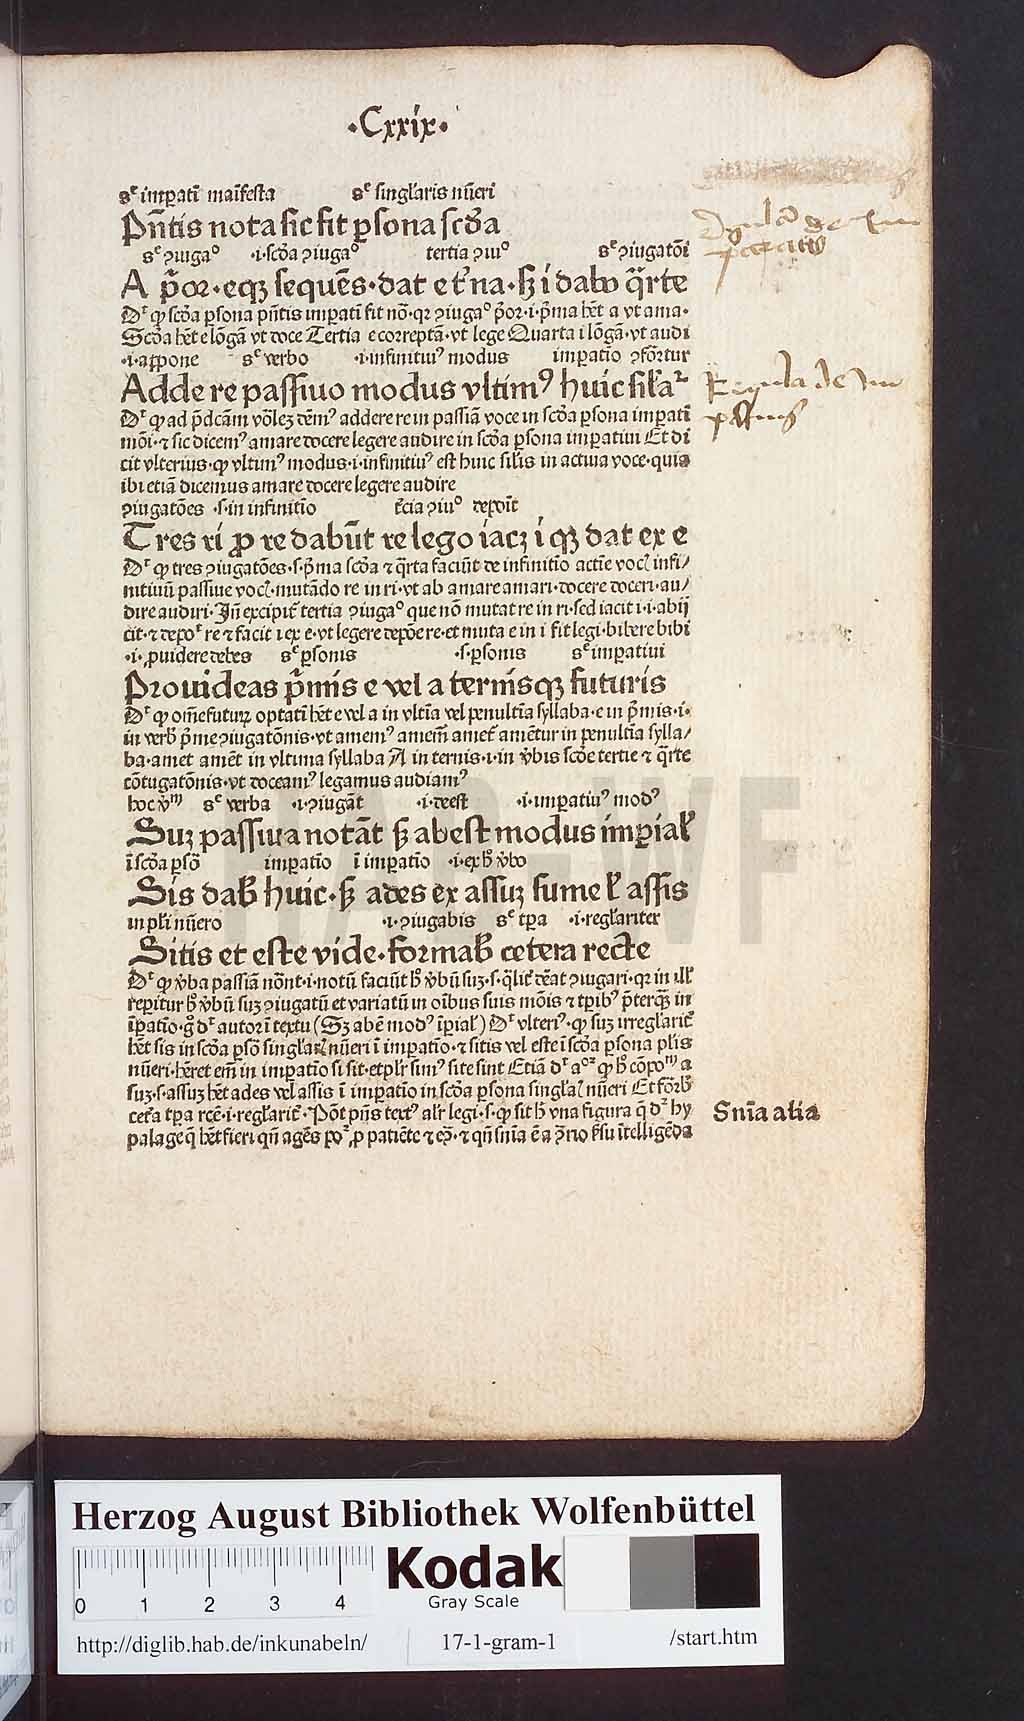 ·Cxxix·
sͤ imꝑati maīfesta sͤ singl̓aris nūeri
Pn̄tis nota sic fit ꝑsona scd̓a
sͤ ꝯiugaͦ ·i·scd̓a ꝯiugaͦ tertia ꝯiuͦ sͤ ꝯiugatōi
A p̄or·eqꝫ sequēs·dat et t̓na·sꝫ i dabo q̄rte
Dʳ ꝙ scd̓a ꝑsona pn̄tis imꝑati fit nō·qꝛ ꝯiugaͦ p̄or·i·p̄ma hēt a vt ama·
Scd̓a hēt e lōgā vt doce Tertia e correptā·vt lege Quarta i lōgā·vt audi
·i·appone sͤ verbo ·i·infinitiuꝰ modus imꝑatio ꝯfōrtur
Adde re passiuo modus vltimꝰ huic sil̓aꝛ
Dʳ ꝙ ad p̄dcām vōleꝫ dēmꝰ addere re in passiā voce in scd̓a ꝑsona imꝑati
mōi·⁊ sic dicemꝰ amare docere legere audire in scd̓a ꝑsona imꝑatiui Et di
cit vlterius·ꝙ vltimꝰ modus·i·infinitiuꝰ est huic silis in actiua voce·quia
ibi etiā dicemus amare docere legere audire
ꝯiugatōes ·s·in infinitio t̄cia ꝯiuͦ deponit
Tres ri ꝓ re dabūt re lego iacꝫ i qꝫ dat ex e
Dʳ ꝙ tres ꝯiugatōes·s·p̄ma scd̓a ⁊ q̄rta faciūt de infinitio actiē voc̓ infi/
nitiuū passiue voc̓·mutādo re in ri·vt ab amare amari·docere doceri·au/
dire audiri·Jn̄ excipit̄ tertia ꝯiugaͦ que nō mutat re in ri·sed iacit i·i·abij
cit·⁊ depoʳ re ⁊ facit i ex e·vt legere depōe re·et muta e in i fit legi·bibere bibi
·i·ꝓuidere debes sͤ ꝑsonis ·s·ꝑsonis sͤ imꝑatiui
Prouideas p̄mis e vel a ternisqꝫ futuris
Dʳ ꝙ om̄e futurꝫ optati hēt e vel a in vltīa vel penultīa syllaba·e in p̄mis·i·
in verb̓ p̄me ꝯiugatōnis·vt amemꝰ amem̄ amet̄ amētur in penultīa sylla/
ba·amet amēt in vltima syllaba A in ternis·i·in v̓bis scd̓e tertie ⁊ q̄rte
cōtugatōnis·vt doceamꝰ legamus audiamꝰ
hoc v̓ᵐ sͤ verba ·i·ꝯiugāt ·i·deest ·i·imꝑatiuꝰ modꝰ
Suꝫ passiua notāt sꝫ abest modus imꝑial̓
ī scd̓a ꝑsō imꝑatio ī imꝑatio ·i·ex h̓ v̓bo
Sis dab̓ huic·sꝫ ades ex assuꝫ sume l̓ assis
in pl̓i nūero ·i·ꝯiugabis sͤ tꝑa ·i·regl̓ariter
Sitis et este vide·formab̓ cetera recte
Dʳ ꝙ v̓ba passiā nōnt·i·notū faciūt h̓ v̓bū suꝫ·s·q̄lit̓ dēat ꝯiugari·qꝛ in ill̓
reꝑitur h̓ v̓bū suꝫ ꝯiugatū et variatū in oībus suis mōis ⁊ tꝑibꝰ p̄terqꝫ in
īꝑatio·g̊ dʳ autor ī textu (Sꝫ abē modꝰ īꝑial̓) Dʳ vlteriꝰ·ꝙ suꝫ irregl̓arit̓
hēt sis in scd̓a ꝑsō singl̓ar̓ nūeri ī imꝑatio·⁊ sitis vel este ī scd̓a ꝑsona pl̄is
nūeri·hēret em̄ in imꝑatio si sit·et pl̄r simꝰ site sint Etiā dʳ aᵒꝛ ꝙ h̓ cōpoᵐ a
suꝫ·s·assuꝫ hēt ades vel assis ī imꝑatio in scd̓a ꝑsona singl̓a̓ nūeri Et fōrb̓
cet̄a tꝑa rcē·i·regl̓arit̓·Pōt pn̄s textꝰ alr̄ legi·s·ꝙ sit h̓ vna figura q̄ dʳ hy
palage q̄ hēt fieri qn̄ agēs poꝛ ꝓ patiēte ⁊ eꝯ·⁊ qn̄ sn̄ia ē a ꝯrio fsu ītelligēda
Sn̄ia alia
Regula de Im
passiuis
Herzog August Bibliothek Wolfenbüttel
0 1 2 3 4
Kodak
Gray Scale
http://diglib.hab.de/inkunabeln/ 17-1-gram-1 /start.htm
HAB-WF